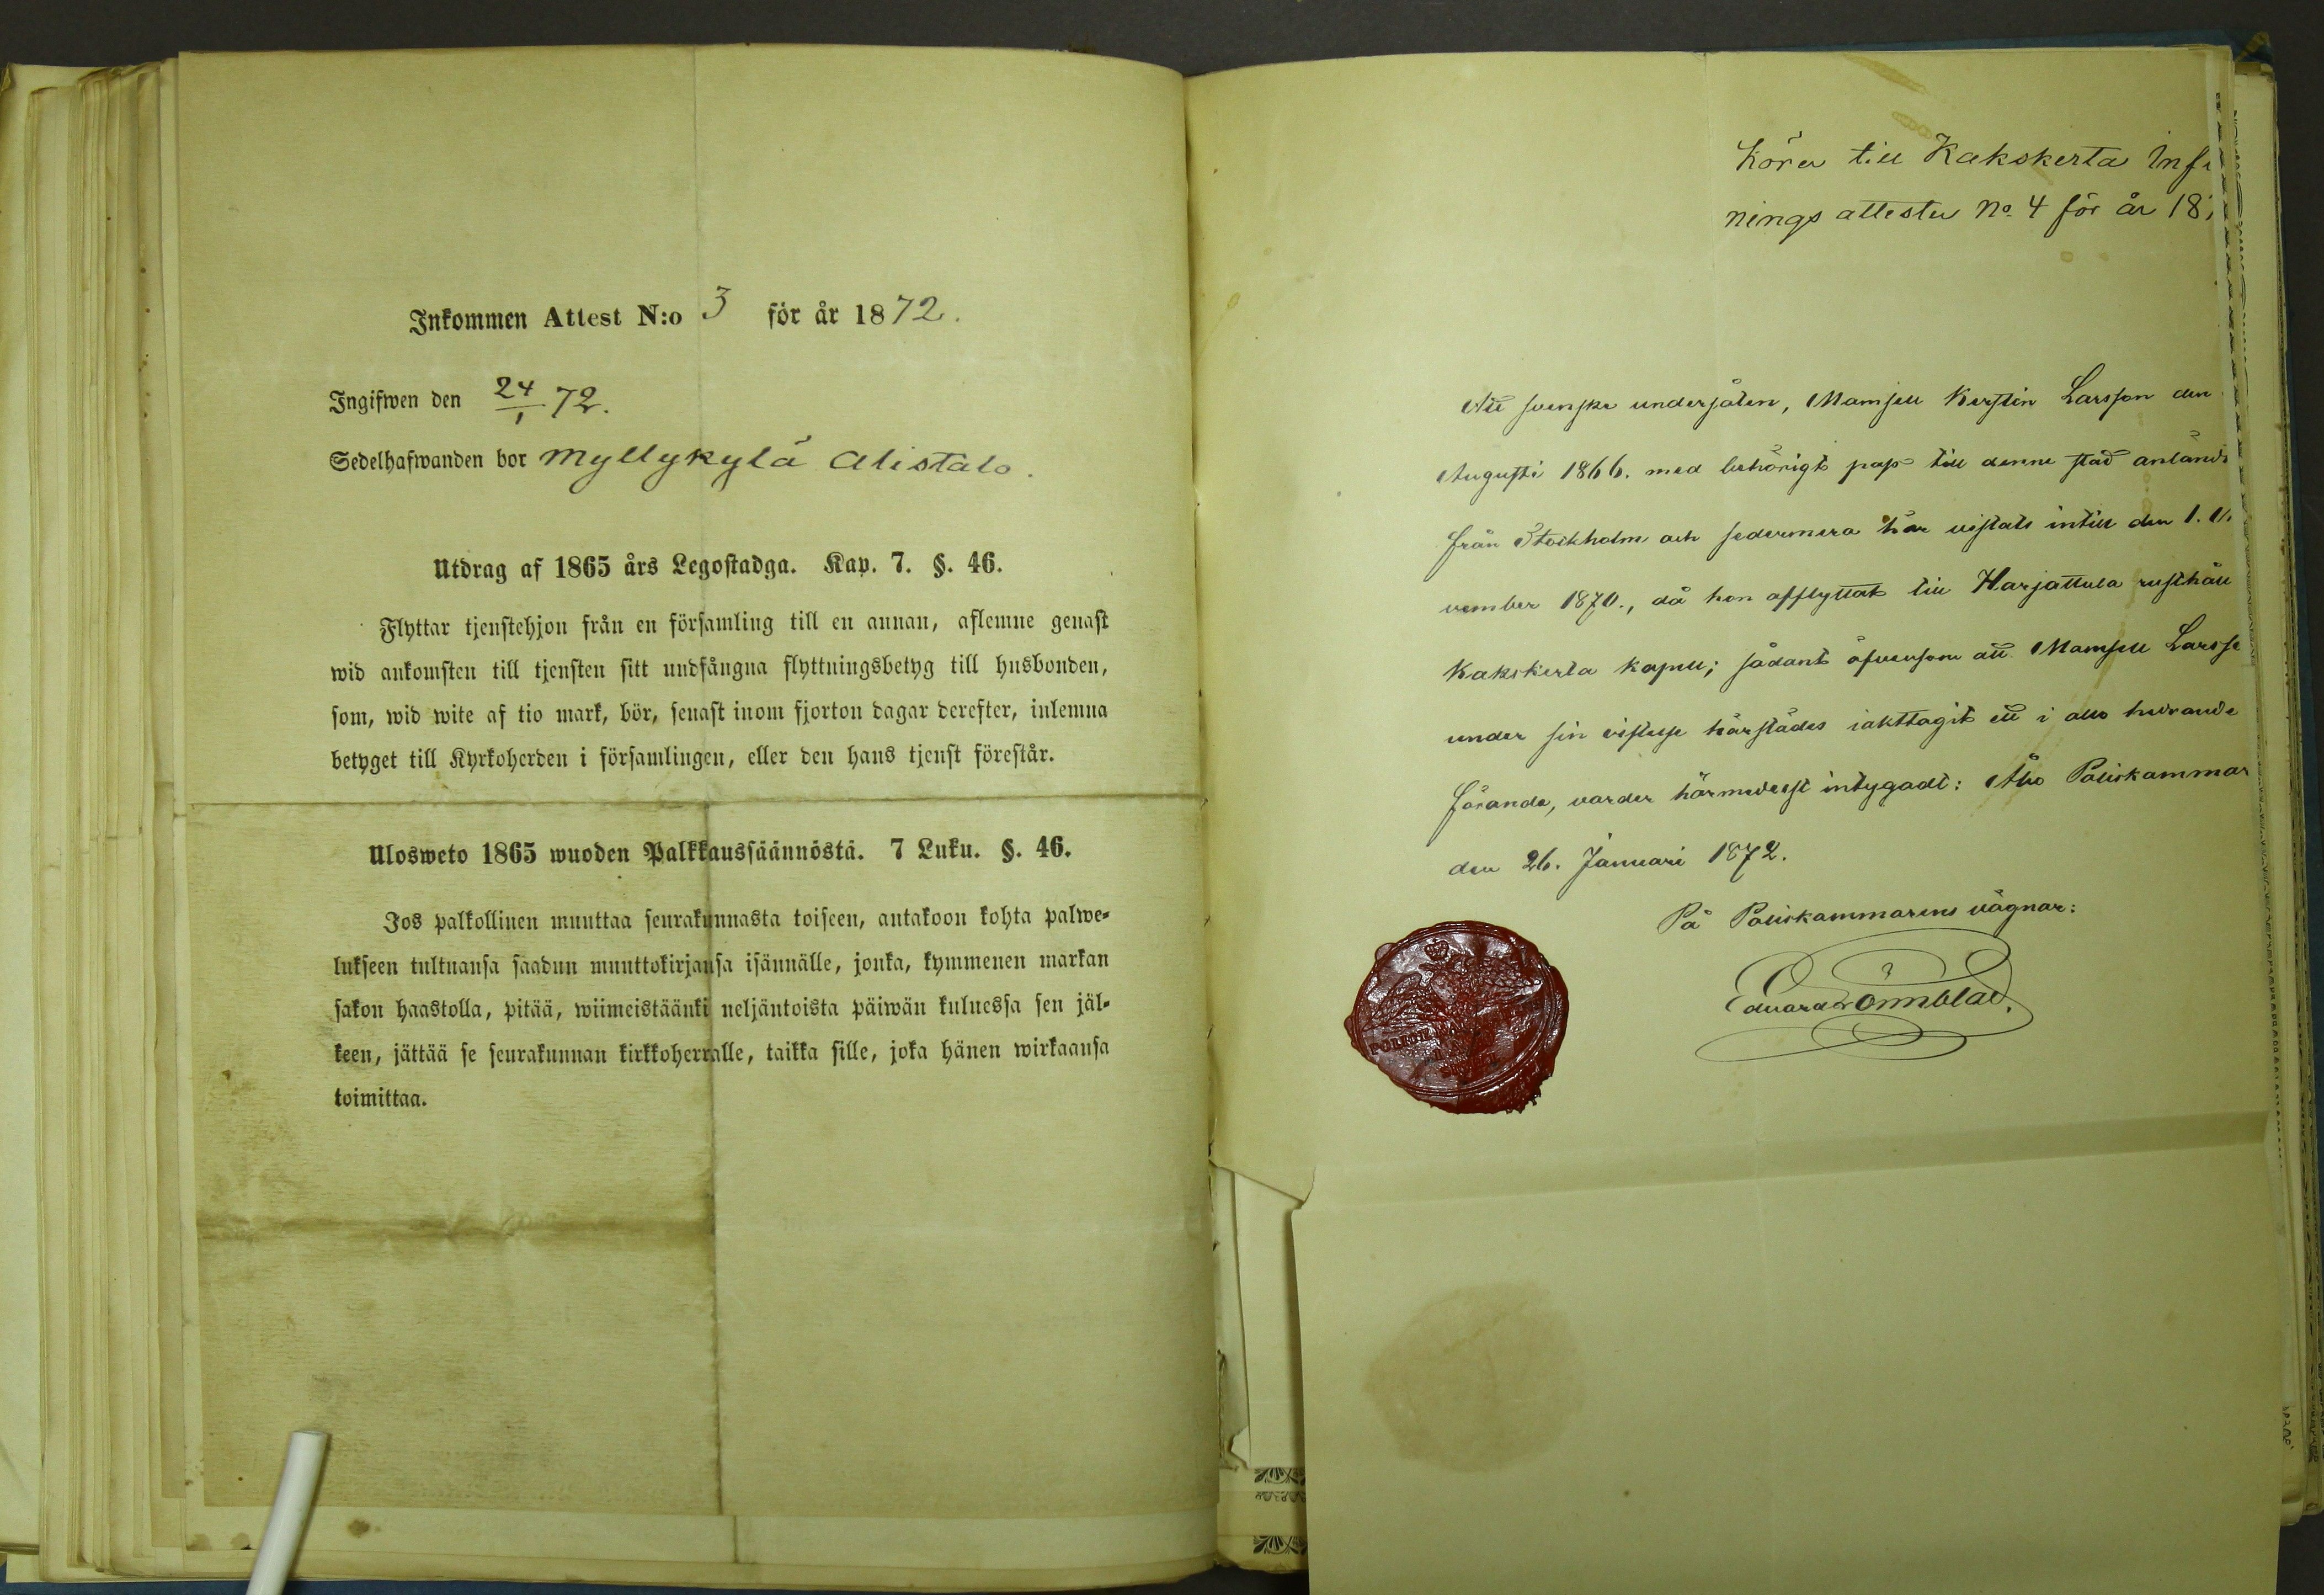 Inkommen Attest N:o 3 för år 1872.
Ingifwen den 24/1 72.
Sedelhafwanden bor Myllykylä Alistalo.
Utdrag af 1865 års Legostadga. Kap. 7. §. 46.
Flyttar tjenstehjon från en församling till en annan, aflemne genast
wid ankomsten till tjensten sitt undfångna flyttningsbetyg till husbonden,
som, wid wite af tio mark, bör, senast inom fjorton dagar derefter, inlemna
betyget till Kyrkoherden i församlingen, eller den hans tjenst förestår.
Ulosweto 1865 wuoden Palkkaussäännöstä. 7 Luku. §. 46.
Jos palkollinen muuttaa seurakunnasta toiseen, antakoon kohta palwe-
lukseen tultuansa saadun muuttokirjansa isännälle, jonka, kymmenen markan
sakon haastolla, pitää, wiimeistäänki neljäntoista päiwän kuluessa sen jäl-
keen, jättää se seurakunnan kirkkoherralle, taikka sille, joka hänen wirkaansa
toimittaa.
höra till Kakskerta Inf
nings attester No. 4 för år 18
Att svenske undersåten, Mamsell Kerstin Larsson den
Augusti 1866. med behörigt pass till denne stad anländt
från Stockholm och sedermera här vistats intill den 1.
vember 1870., då hon afflyttat till Harjattula rusthåll
Kakskerta kapell; sådant äfvensom att Mamsell Larsso
under sin vistelse härstädes iakttagit ett i allo hedrande
förande, varder härmedelst intygadt: Åbo Poliskammar
den 26. Januari 1872.
På Poliskammarens vägnar:
Eduard Lönnblad.